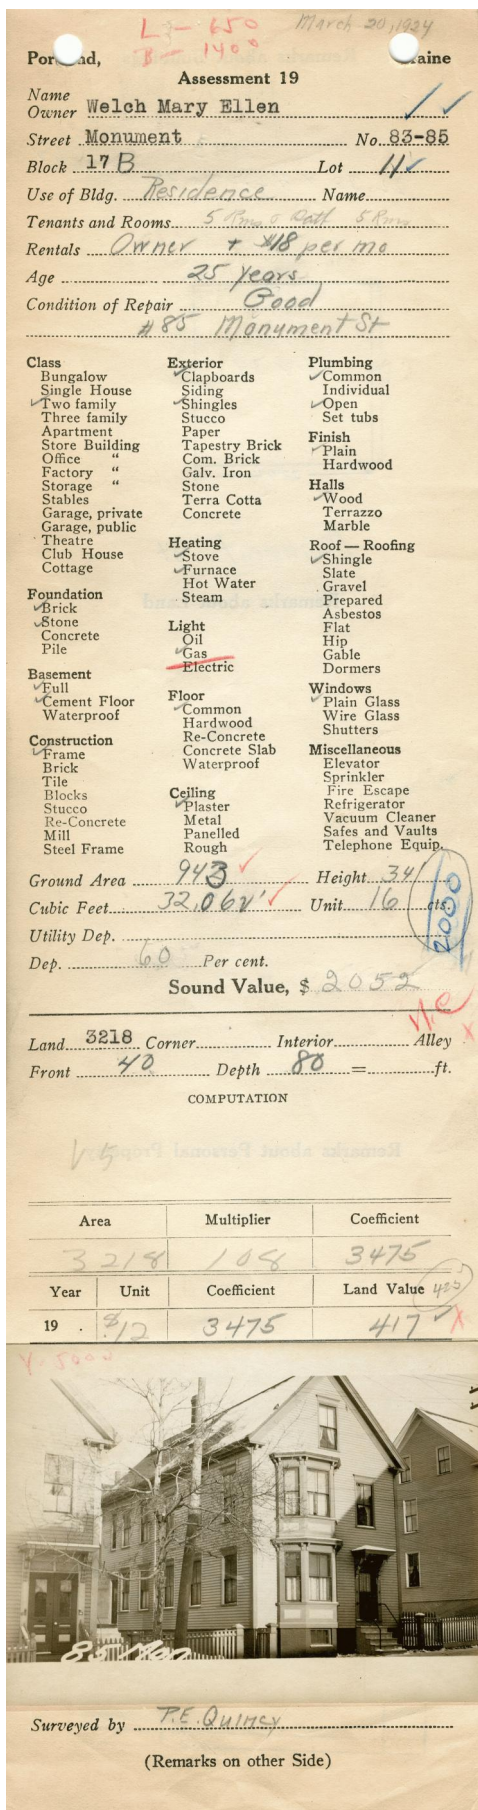 L - 650
March 20, 1924
B - 1400
Portland, Maine
Assessment 19
Name
Owner Welch Mary Ellen
Street Monument No. 83-85
Block 17 B Lot 11
Use of Bldg. Residence Name
Tenants and Rooms 5 Rms & Bath 5 Rms
Rentals Owner + $18 per mo
Age 25 years
Condition of Repair Good
#85 Monument St
Class
Bungalow
Single House
Two family
Three family
Apartment
Store Building
Office "
Factory "
Storage "
Stables
Garage, private
Garage, public
Theatre
Club House
Cottage
Foundation
Brick
Stone
Concrete
Pile
Basement
Full
Cement Floor
Waterproof
Construction
Frame
Brick
Tile
Blocks
Stucco
Re-Concrete
Mill
Steel Frame
Exterior
Clapboards
Siding
Shingles
Stucco
Paper
Tapestry Brick
Com. Brick
Galv. Iron
Stone
Terra Cotta
Concrete
Heating
Stove
Furnace
Hot Water
Steam
Light
Oil
Gas
Electric
Floor
Common
Hardwood
Re-Concrete
Concrete Slab
Waterproof
Ceiling
Plaster
Metal
Panelled
Rough
Plumbing
Common
Individual
Open
Set tubs
Finish
Plain
Hardwood
Halls
Wood
Terrazzo
Marble
Roof — Roofing
Shingle
Slate
Gravel
Prepared
Asbestos
Flat
Hip
Gable
Dormers
Windows
Plain Glass
Wire Glass
Shutters
Miscellaneous
Elevator
Sprinkler
Fire Escape
Refrigerator
Vacuum Cleaner
Safes and Vaults
Telephone Equip.
Ground Area 943 Height 34'
Cubic Feet 32,062' Unit 16 cts.
2000
Utility Dep.
Dep. 60 Per cent.
Sound Value, $ 2052
N.C
Land 3218 Corner Interior Alley
Front 40 Depth 80 = ft.
COMPUTATION
Area Multiplier Coefficient
3218 108 3475
Year Unit Coefficient Land Value 425
19 . $12 3475 417
85 Mon
Surveyed by P.E. Quincy
(Remarks on other Side)